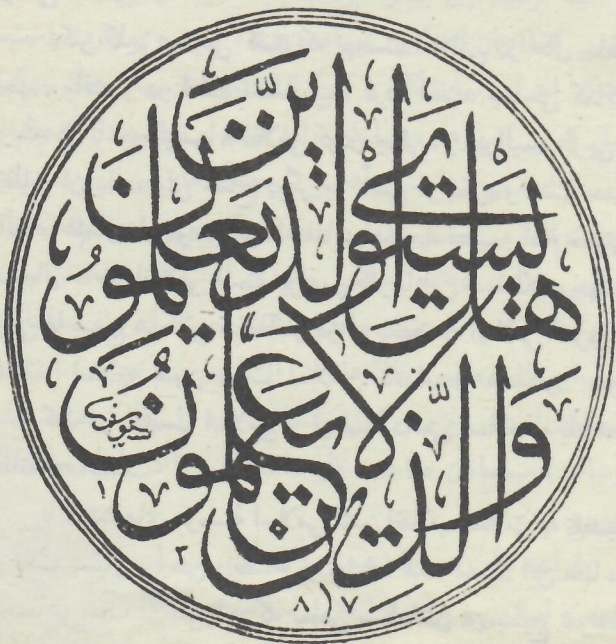 هل يستوي الذين يعلمون
والذين لا يعلمون